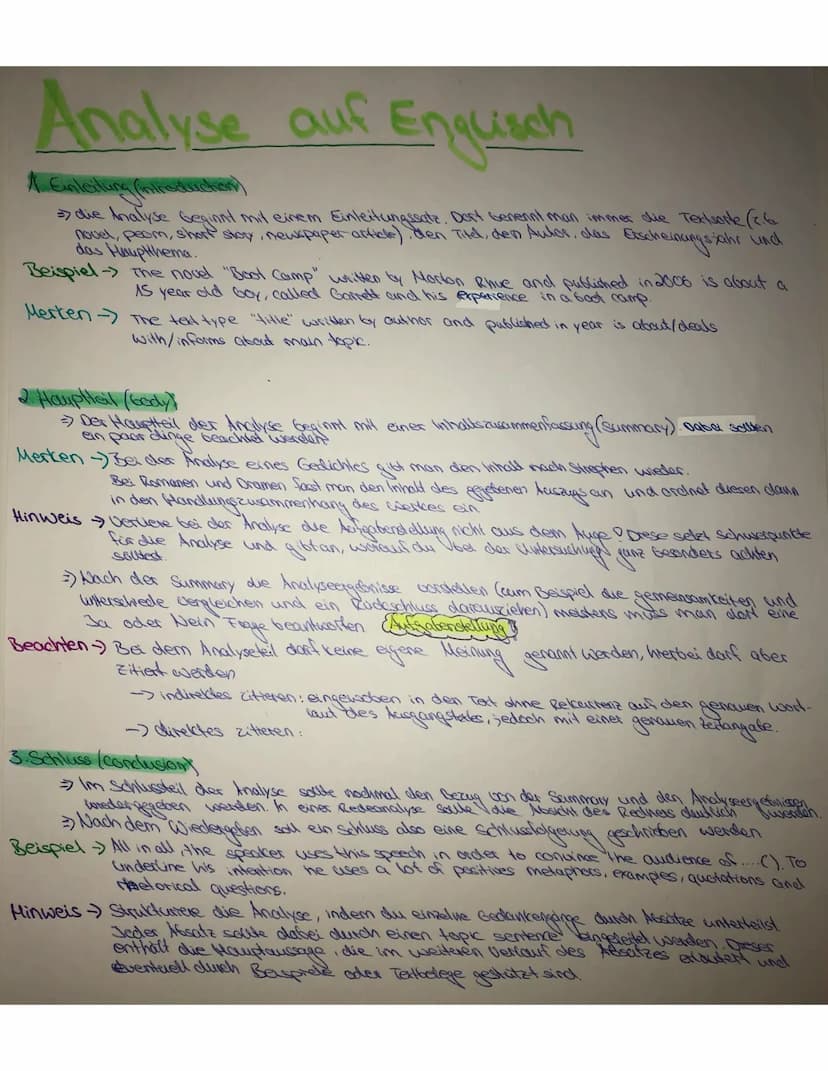 Analyse auf Englisch
1. Einleitung (introduction)
=> die Analyse beginnt mit einem Einleitungssatz. Dort benennt man immer die Textsorte (z.B
novel, peom, short story, newspaper-article), den Titel, den Autor, das Erscheinungsjahr und
das Hauptthema.
Beispiel -> The novel "Boot Camp" written by Morton Rhue and published in 2006 is about a
15 year old boy, called Garrett and his experience in a boot camp.
Merken -> The text type "title" written by author and published in year is about/deals
with/informs about main topic.
2. Hauptteil (body)
=> Der Hauptteil der Analyse beginnt mit einer Inhaltszusammenfassung (Summary). Dabei sollten
ein paar dinge beachtet werden
Merken -> Bei der Analyse eines Gedichtes gibt man den Inhalt nach Strophen wieder.
Bei Romanen und Dramen fasst man den Inhalt des gegebenen Auszugs an und ordnet diesen dann
in den Handlungszusammenhang des Werkes ein
Hinweis -> Verliere bei der Analyse die Aufgabenstellung nicht aus dem Auge! Diese setzt Schwerpunkte
für die Analyse und gibt an, worauf du bei der Untersuchung ganz besonders achten
solltest.
=> Nach der Summary die Analyseergebnisse vorstellen (zum Beispiel die gemeinsamkeiten und
unterschiede vergleichen und ein Rückschluss darausziehen) meistens muss man dort eine
Ja oder Nein Frage beantworten Aufgabenstellung!
Beachten -> Bei dem Analyseteil darf keine eigene Meinung genannt werden, hierbei darf aber
zitiert werden
-> indirektes zitieren: eingewoben in den Text ohne Rekurrenz auf den genauen wort-
laut des Ausgangstextes, jedoch mit einer genauen Zeilangabe.
-> direktes zitieren:
3. Schluss (conclusion)
=> Im Schlussteil der Analyse sollte nochmal den Bezug von der Summary und den Analyseergebnissen
wiedergegeben werden. In einer Redeanalyse sollte die Absicht des Redners deutlich werden.
=> Nach dem Wiedergeben soll ein Schluss also eine Schlussfolgerung geschrieben werden
Beispiel -> All in all, the speaker uses this speech in order to convince the audience of .... (). To
underline his intention he uses a lot of positives metaphors, examples, quotations and
rhetorical questions.
Hinweis -> Strukturiere die Analyse, indem du einzelne Gedankengänge durch Absätze unterteilst
Jeder Absatz sollte dabei durch einen topic sentence eingeleitet werden. Dieser
enthält die Hauptaussage, die im weiteren Verlauf des Absatzes erläutert und
eventuell durch Beispiele oder Textbelege gestützt sind.